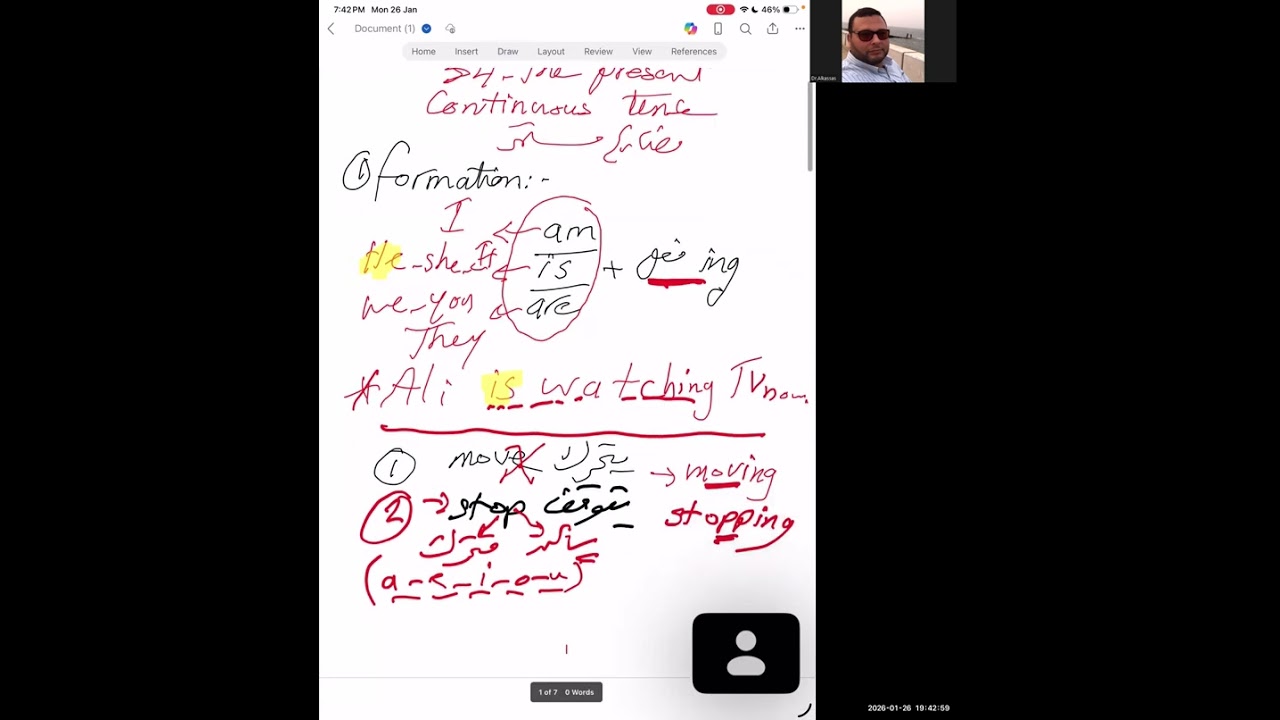 7:42 PM Mon 26 Jan
46%
Document (1)
Home Insert Draw Layout Review View References
Dr.Alhassas
The present
Continuous Tense
① formation:-
I am
He-she-It is + فعل ing
we-you are
They
*Ali is watching TV now.
① move يتحرك → moving
② → stop يتوقف stopping
متحرك ساكن
(a-e-i-o-u)
1 of 7 0 Words
2026-01-26 19:42:59